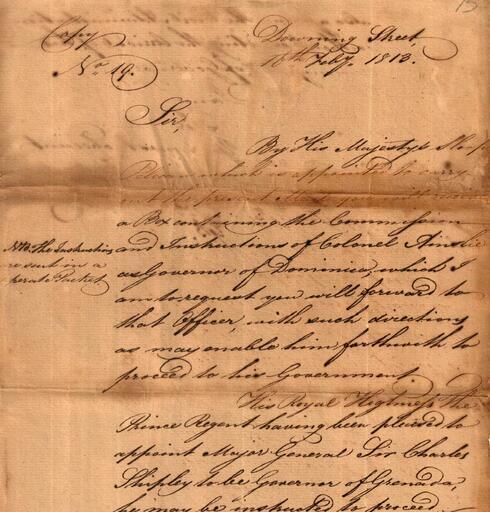 15
Copy
No. 19.
Downing Street,
18th Feby. 1813.
Sir,
By His Majesty's Sloop
which is appointed to carry
out the present
a Box containing the Commission
and Instructions of Colonel Ainslie
as Governor of Dominica, which I
am to request you will forward to
that Officer, with such directions
as may enable him forthwith to
proceed to his Government.
Nta. The Instructions
re sent in a
perate Packet
His Royal Highness the
Prince Regent having been pleased to
appoint Major General Sir Charles
Shipley to be Governor of Grenada,
he may be instructed to proceed